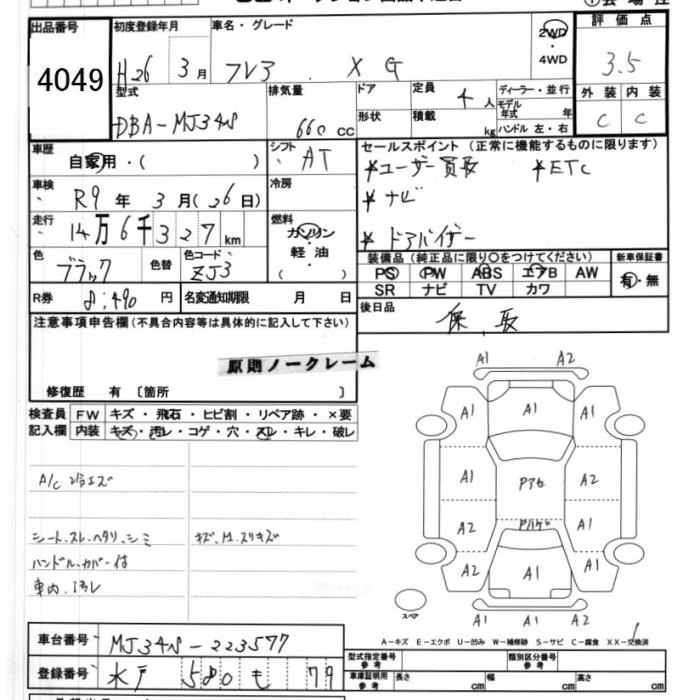 出品番号 初度登録年月 車名・グレード 2WD・4WD 評価点
4049 H26 3月 フレア XG 3.5
型式 排気量 ドア 定員 4人 ディーラー・並行 外装 内装
DBA-MJ34S 660cc 形状 積載 kg モデル年式 年 ハンドル 左・右 C C
車歴 自家用・( ) シフト AT セールスポイント(正常に機能するものに限ります)
*ユーザー買取 *ETC
車検 R9年3月(26日) 冷房
*ナビ
走行 14万6千327km 燃料 ガソリン
*ドアバイザー
軽油
( )
色 ブラック 色替 色コード ZJ3
装備品(純正品に限り○をつけてください) 新車保証書
PS PW ABS エアB AW 有・無
SR ナビ TV カワ
R券 8,490円 名変通知期限 月 日
後日品
保、取
注意事項申告欄(不具合内容等は具体的に記入して下さい)
原則ノークレーム
修復歴 有 〔箇所 〕
検査員記入欄 FW キズ・飛石・ヒビ割・リペア跡・×要
内装 キズ・汚レ・コゲ・穴・スレ・キレ・破レ
A1 A2
A1 A1 A1
A1 PアセA2
A2 Pハゲ A1
A2 A1 A1
A1 A1 A2
スペア
A/C
シート、スレ、ヘタリ、シミ キズ、M、スリキズ
ハンドル、カバー付
車内、汚レ
A-キズ E-エクボ U-凹み W-補修跡 S-サビ C-腐食 XX-交換済
車台番号 MJ34S-223577
登録番号 水戸 580 も 79
型式指定番号 参考 類別区分番号 参考
車庫証明用 参考 長さ cm 幅 cm 高さ cm